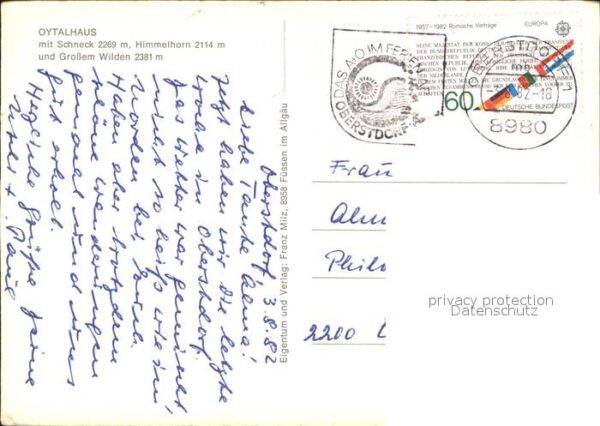 OYTALHAUS
mit Schneck 2269 m, Himmelhorn 2114 m
und Großem Wilden 2381 m
Oberstdorf, 3.8.82
Liebe Tante Alma!
Jetzt haben wir die letzte
Woche in Oberstdorf
das Wetter war gemischt
nicht so heiß wie im
Norden bei Euch.
Haben aber trotzdem
schöne Wanderungen
gemacht und uns
gut erholt.
Herzliche Grüße Deine
Eigentum und Verlag: Franz Milz, 8958 Füssen im Allgäu
DAS A-O IM FERIEN
OBERSTDORF
1957-1982 Römische Verträge
EUROPA
60
DEUTSCHE BUNDESPOST
OBERSTDORF
82-18
8980
Frau
Alm
Philo
2200
privacy protection
Datenschutz